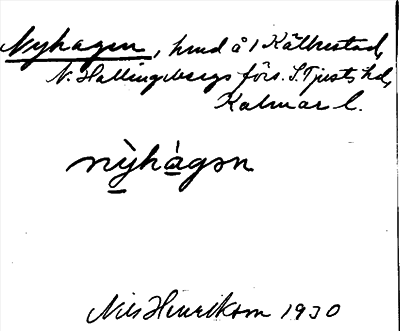 Nyhagen, hmd å 1 Källerstad,
N. Hallingebergs förs. S. Tjusts hd,
Kalmar l.
nỳhàgən
Nils Henrikson 1930